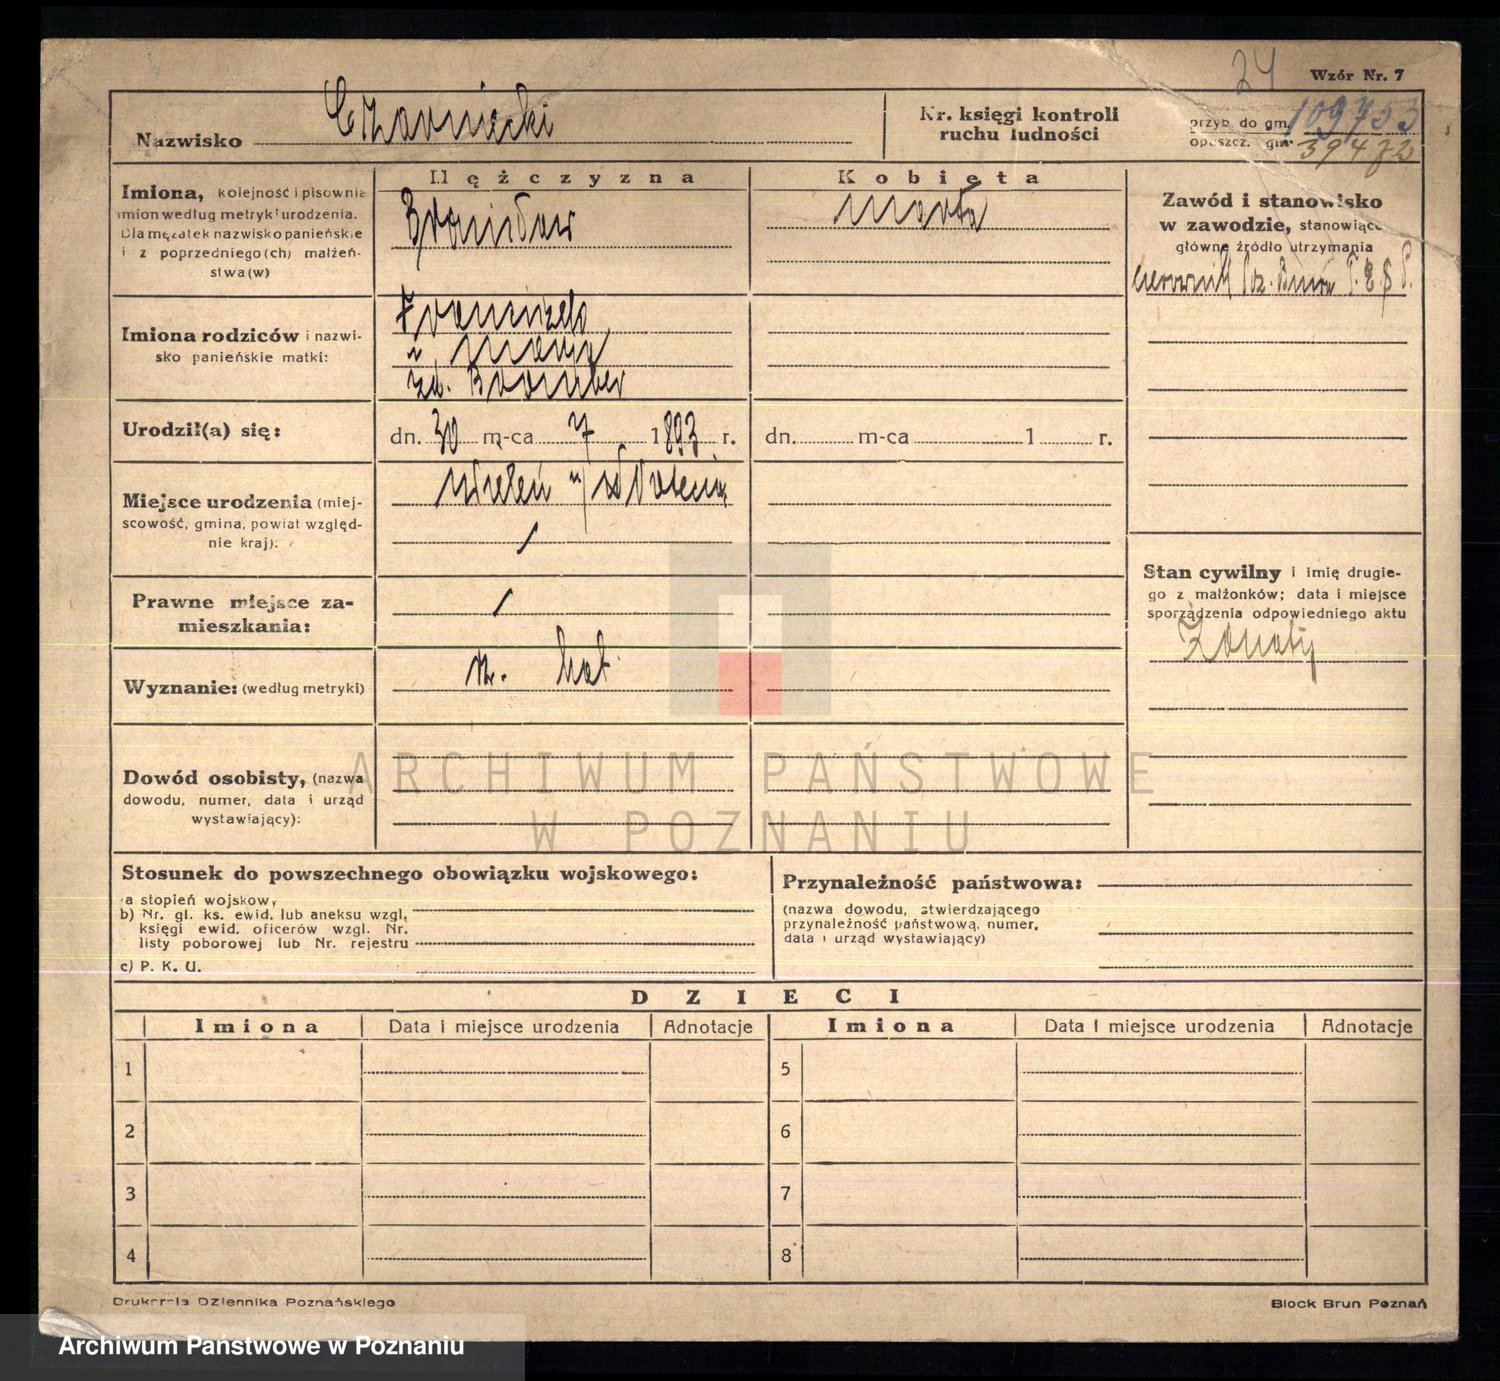 24
Wzór Nr. 7
Nazwisko Czarniecki
Nr. księgi kontroli
ruchu ludności
przyb. do gm. 109753
opuszcz. gm. 39472
Mężczyzna
Kobieta
Imiona, kolejność i pisownia
imion według metryki urodzenia.
Dla mężatek nazwisko panieńskie
i z poprzedniego(ch) małżeń-
stwa(w)
Bronisław
Marta
Zawód i stanowisko
w zawodzie, stanowiące
główne źródło utrzymania
Imiona rodziców i nazwi-
sko panieńskie matki:
Franciszek
Maria
Urodził(a) się:
dn. 30 m-ca 7 1893 r.
dn. m-ca 1 r.
Miejsce urodzenia (miej-
scowość, gmina, powiat względ-
nie kraj):
Wieleń n/
Prawne miejsce za-
mieszkania:
Wyznanie: (według metryki)
rz. kat.
Stan cywilny i imię drugie-
go z małżonków; data i miejsce
sporządzenia odpowiedniego aktu
Żonaty
Dowód osobisty, (nazwa
dowodu, numer, data i urząd
wystawiający):
ARCHIWUM PAŃSTWOWE
W POZNANIU
Stosunek do powszechnego obowiązku wojskowego:
a stopień wojskowy
b) Nr. gł. ks. ewid. lub aneksu wzgl.
księgi ewid. oficerów wzgl. Nr.
listy poborowej lub Nr. rejestru
c) P. K. U.
Przynależność państwowa:
(nazwa dowodu, stwierdzającego
przynależność państwową, numer,
data i urząd wystawiający)
DZIECI
Imiona Data i miejsce urodzenia Adnotacje Imiona Data i miejsce urodzenia Adnotacje
1 5
2 6
3 7
4 8
Drukarnia Dziennika Poznańskiego
Block Brun Poznań
Archiwum Państwowe w Poznaniu